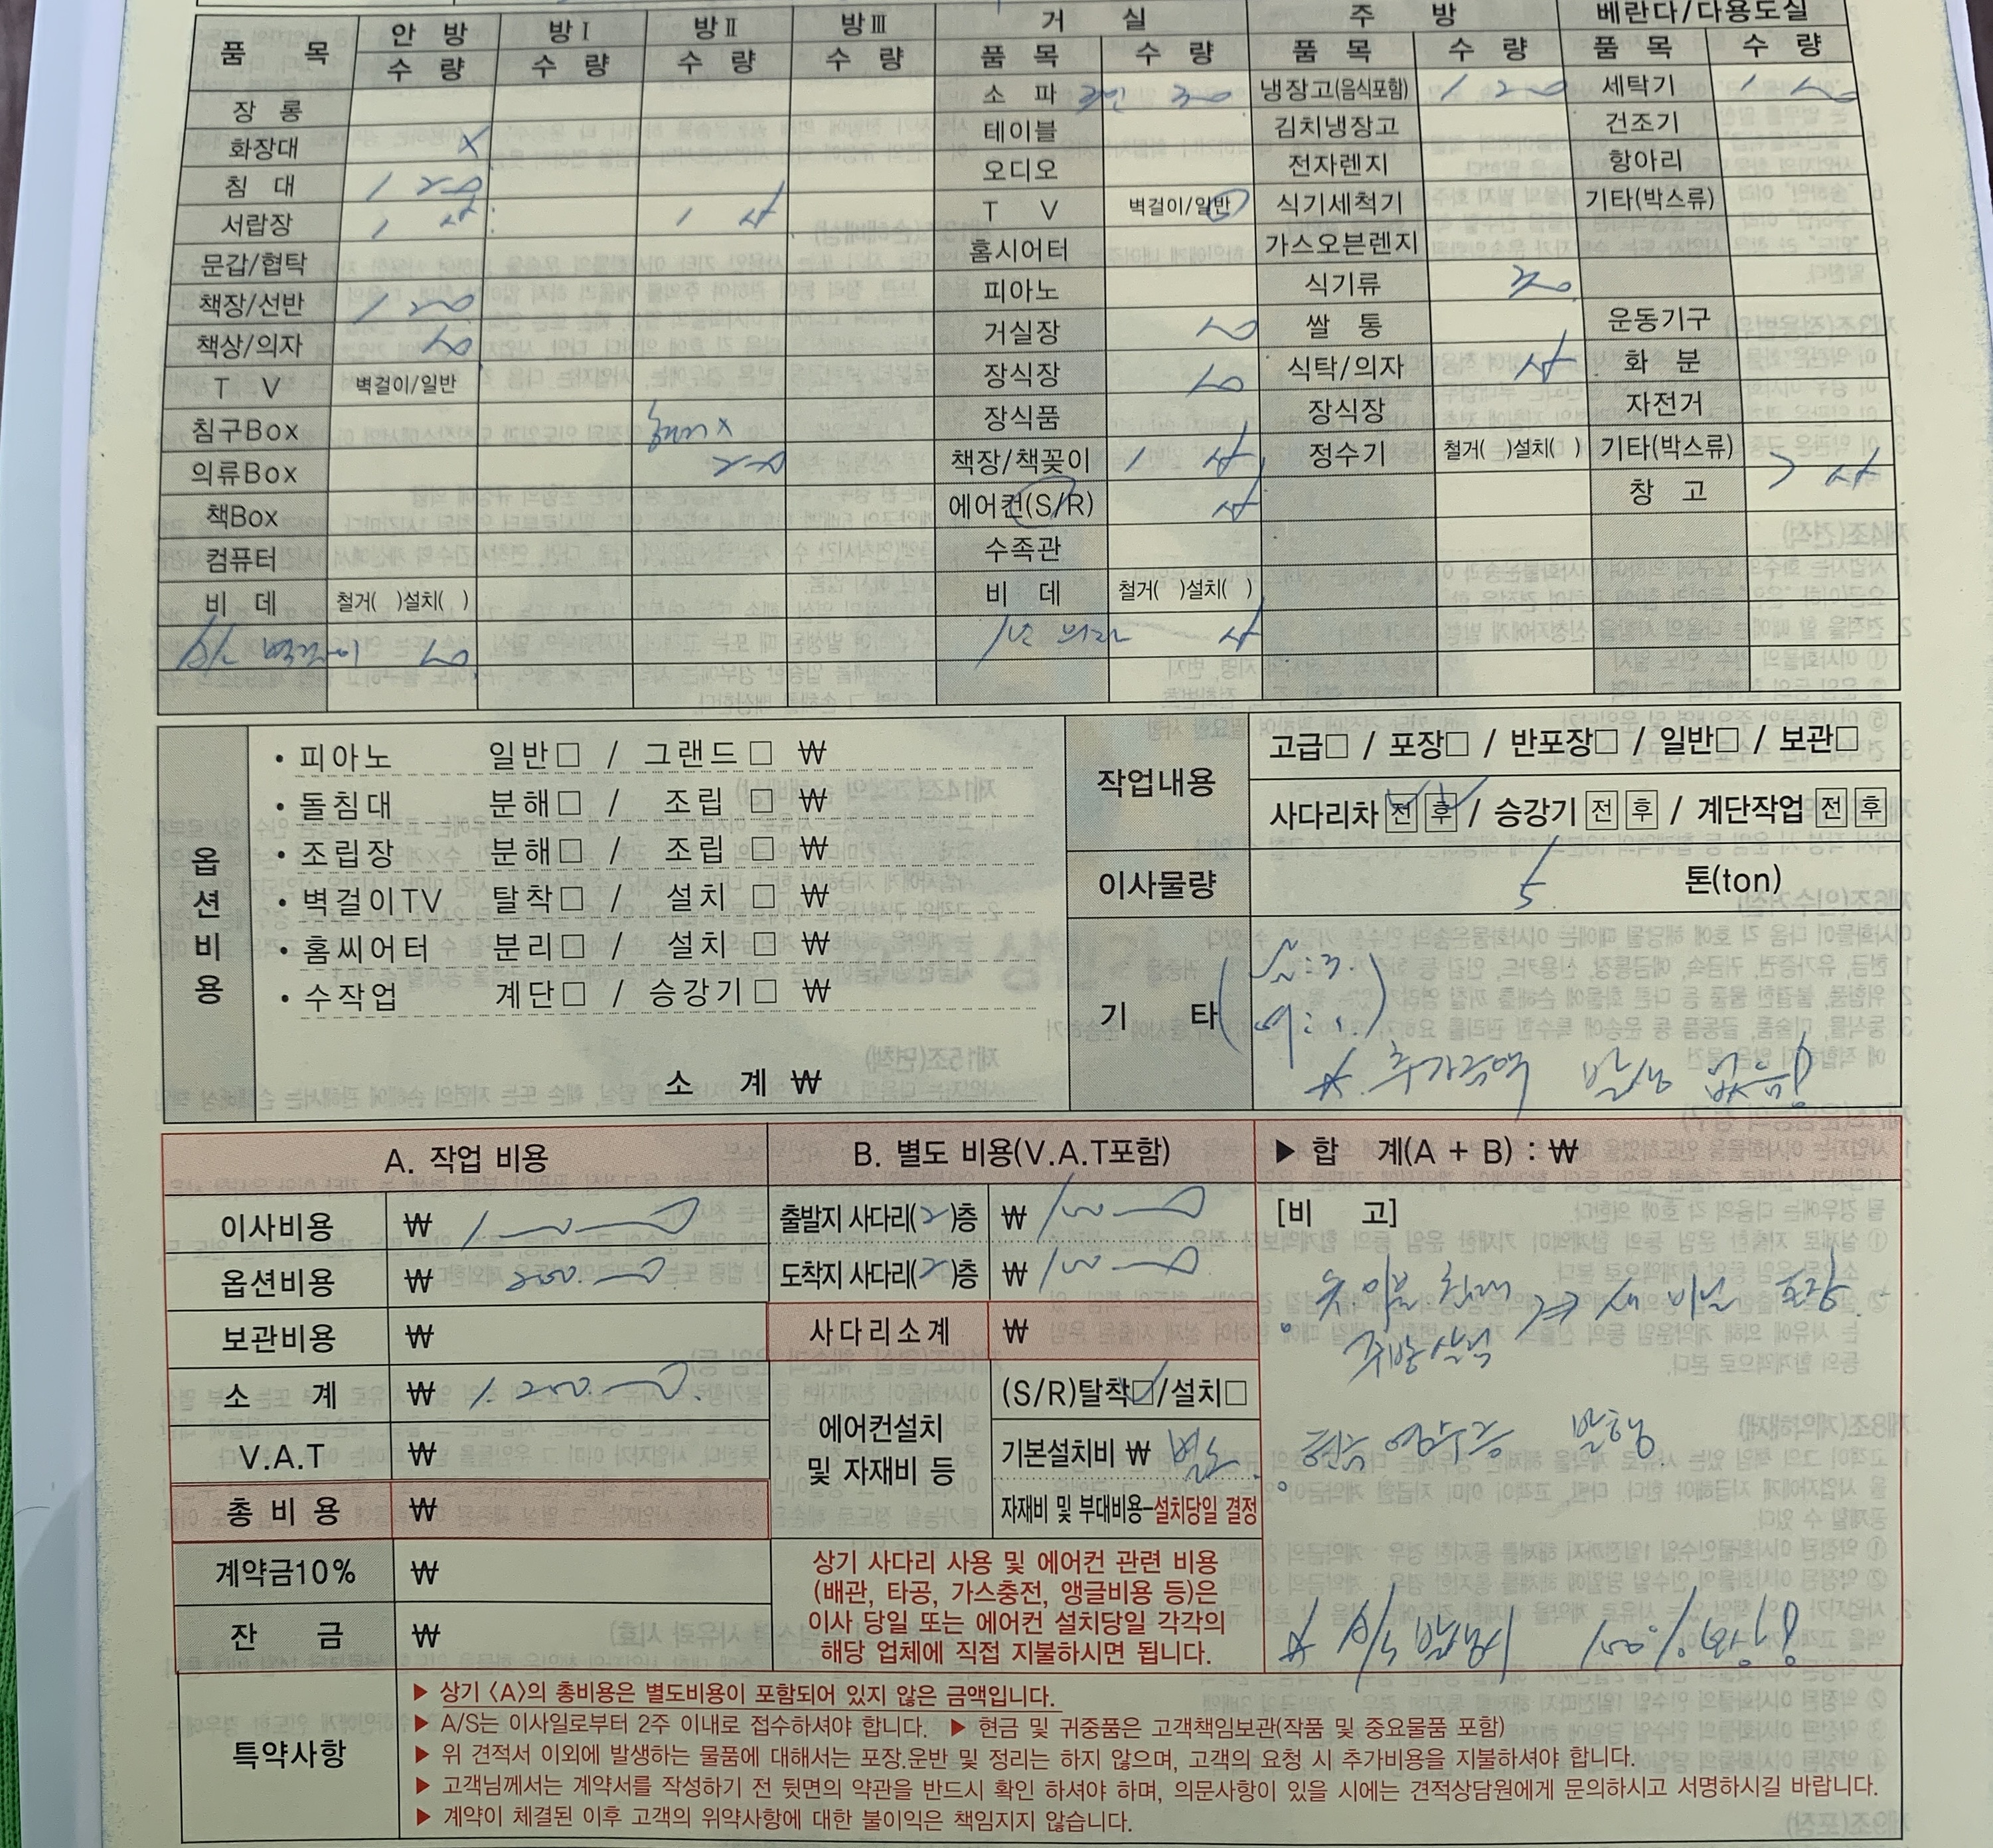 품 목 안 방 방Ⅰ 방Ⅱ 방Ⅲ 거 실 주 방 베란다/다용도실
수 량 수 량 수 량 수 량 품 목 수 량 품 목 수 량 품 목 수 량
장 롱 소 파 3인 30 냉장고(음식포함) 1 20 세탁기 1 10
화장대 X 테이블 김치냉장고 건조기
침 대 1 20 오디오 전자렌지 항아리
서랍장 1 5 1 5 T V 벽걸이/일반 식기세척기 기타(박스류)
문갑/협탁 홈시어터 가스오븐렌지
책장/선반 1 20 피아노 식기류 30
책상/의자 10 거실장 10 쌀 통 운동기구
T V 벽걸이/일반 장식장 10 식탁/의자 5 화 분
침구Box 행거 X 장식품 장식장 자전거
의류Box 20 책장/책꽂이 1 5 정수기 철거( )설치( ) 기타(박스류)
책Box 에어컨(S/R) 5 창 고 5
컴퓨터 수족관
비 데 철거( )설치( ) 비 데 철거( )설치( )
벽걸이 10 5
옵션비용
• 피아노 일반□ / 그랜드□ ₩
• 돌침대 분해□ / 조립 □ ₩
• 조립장 분해□ / 조립 □ ₩
• 벽걸이TV 탈착□ / 설치 □ ₩
• 홈씨어터 분리□ / 설치 □ ₩
• 수작업 계단□ / 승강기□ ₩
소 계 ₩
작업내용 고급□ / 포장□ / 반포장□ / 일반□ / 보관□
사다리차 전 후 / 승강기 전 후 / 계단작업 전 후
이사물량 5 톤(ton)
기 타 남:3.
여:1.
☆. 추가금액 발생 없음!
A. 작업 비용 B. 별도 비용(V.A.T포함) ▶ 합 계(A + B) : ₩
이사비용 ₩ 1,000,000 출발지 사다리(2)층 ₩ 100,000
옵션비용 ₩ 200,000 도착지 사다리(2)층 ₩ 100,000
보관비용 ₩ 사다리소계 ₩
소 계 ₩ 1.200.000.
V.A.T ₩
총 비 용 ₩
계약금10% ₩
잔 금 ₩
에어컨설치
및 자재비 등
(S/R)탈착□/설치□
기본설치비 ₩ 별도.
자재비 및 부대비용-설치당일 결정
상기 사다리 사용 및 에어컨 관련 비용
(배관, 타공, 가스충전, 앵글비용 등)은
이사 당일 또는 에어컨 설치당일 각각의
해당 업체에 직접 지불하시면 됩니다.
[비 고]
옷.이불 침대 => 새 비닐 포장.
주방살림
현금 영수증 발행.
☆ A/S 발생시 100% 보상!
특약사항
▶ 상기 〈A〉의 총비용은 별도비용이 포함되어 있지 않은 금액입니다.
▶ A/S는 이사일로부터 2주 이내로 접수하셔야 합니다. ▶ 현금 및 귀중품은 고객책임보관(작품 및 중요물품 포함)
▶ 위 견적서 이외에 발생하는 물품에 대해서는 포장.운반 및 정리는 하지 않으며, 고객의 요청 시 추가비용을 지불하셔야 합니다.
▶ 고객님께서는 계약서를 작성하기 전 뒷면의 약관을 반드시 확인 하셔야 하며, 의문사항이 있을 시에는 견적상담원에게 문의하시고 서명하시길 바랍니다.
▶ 계약이 체결된 이후 고객의 위약사항에 대한 불이익은 책임지지 않습니다.